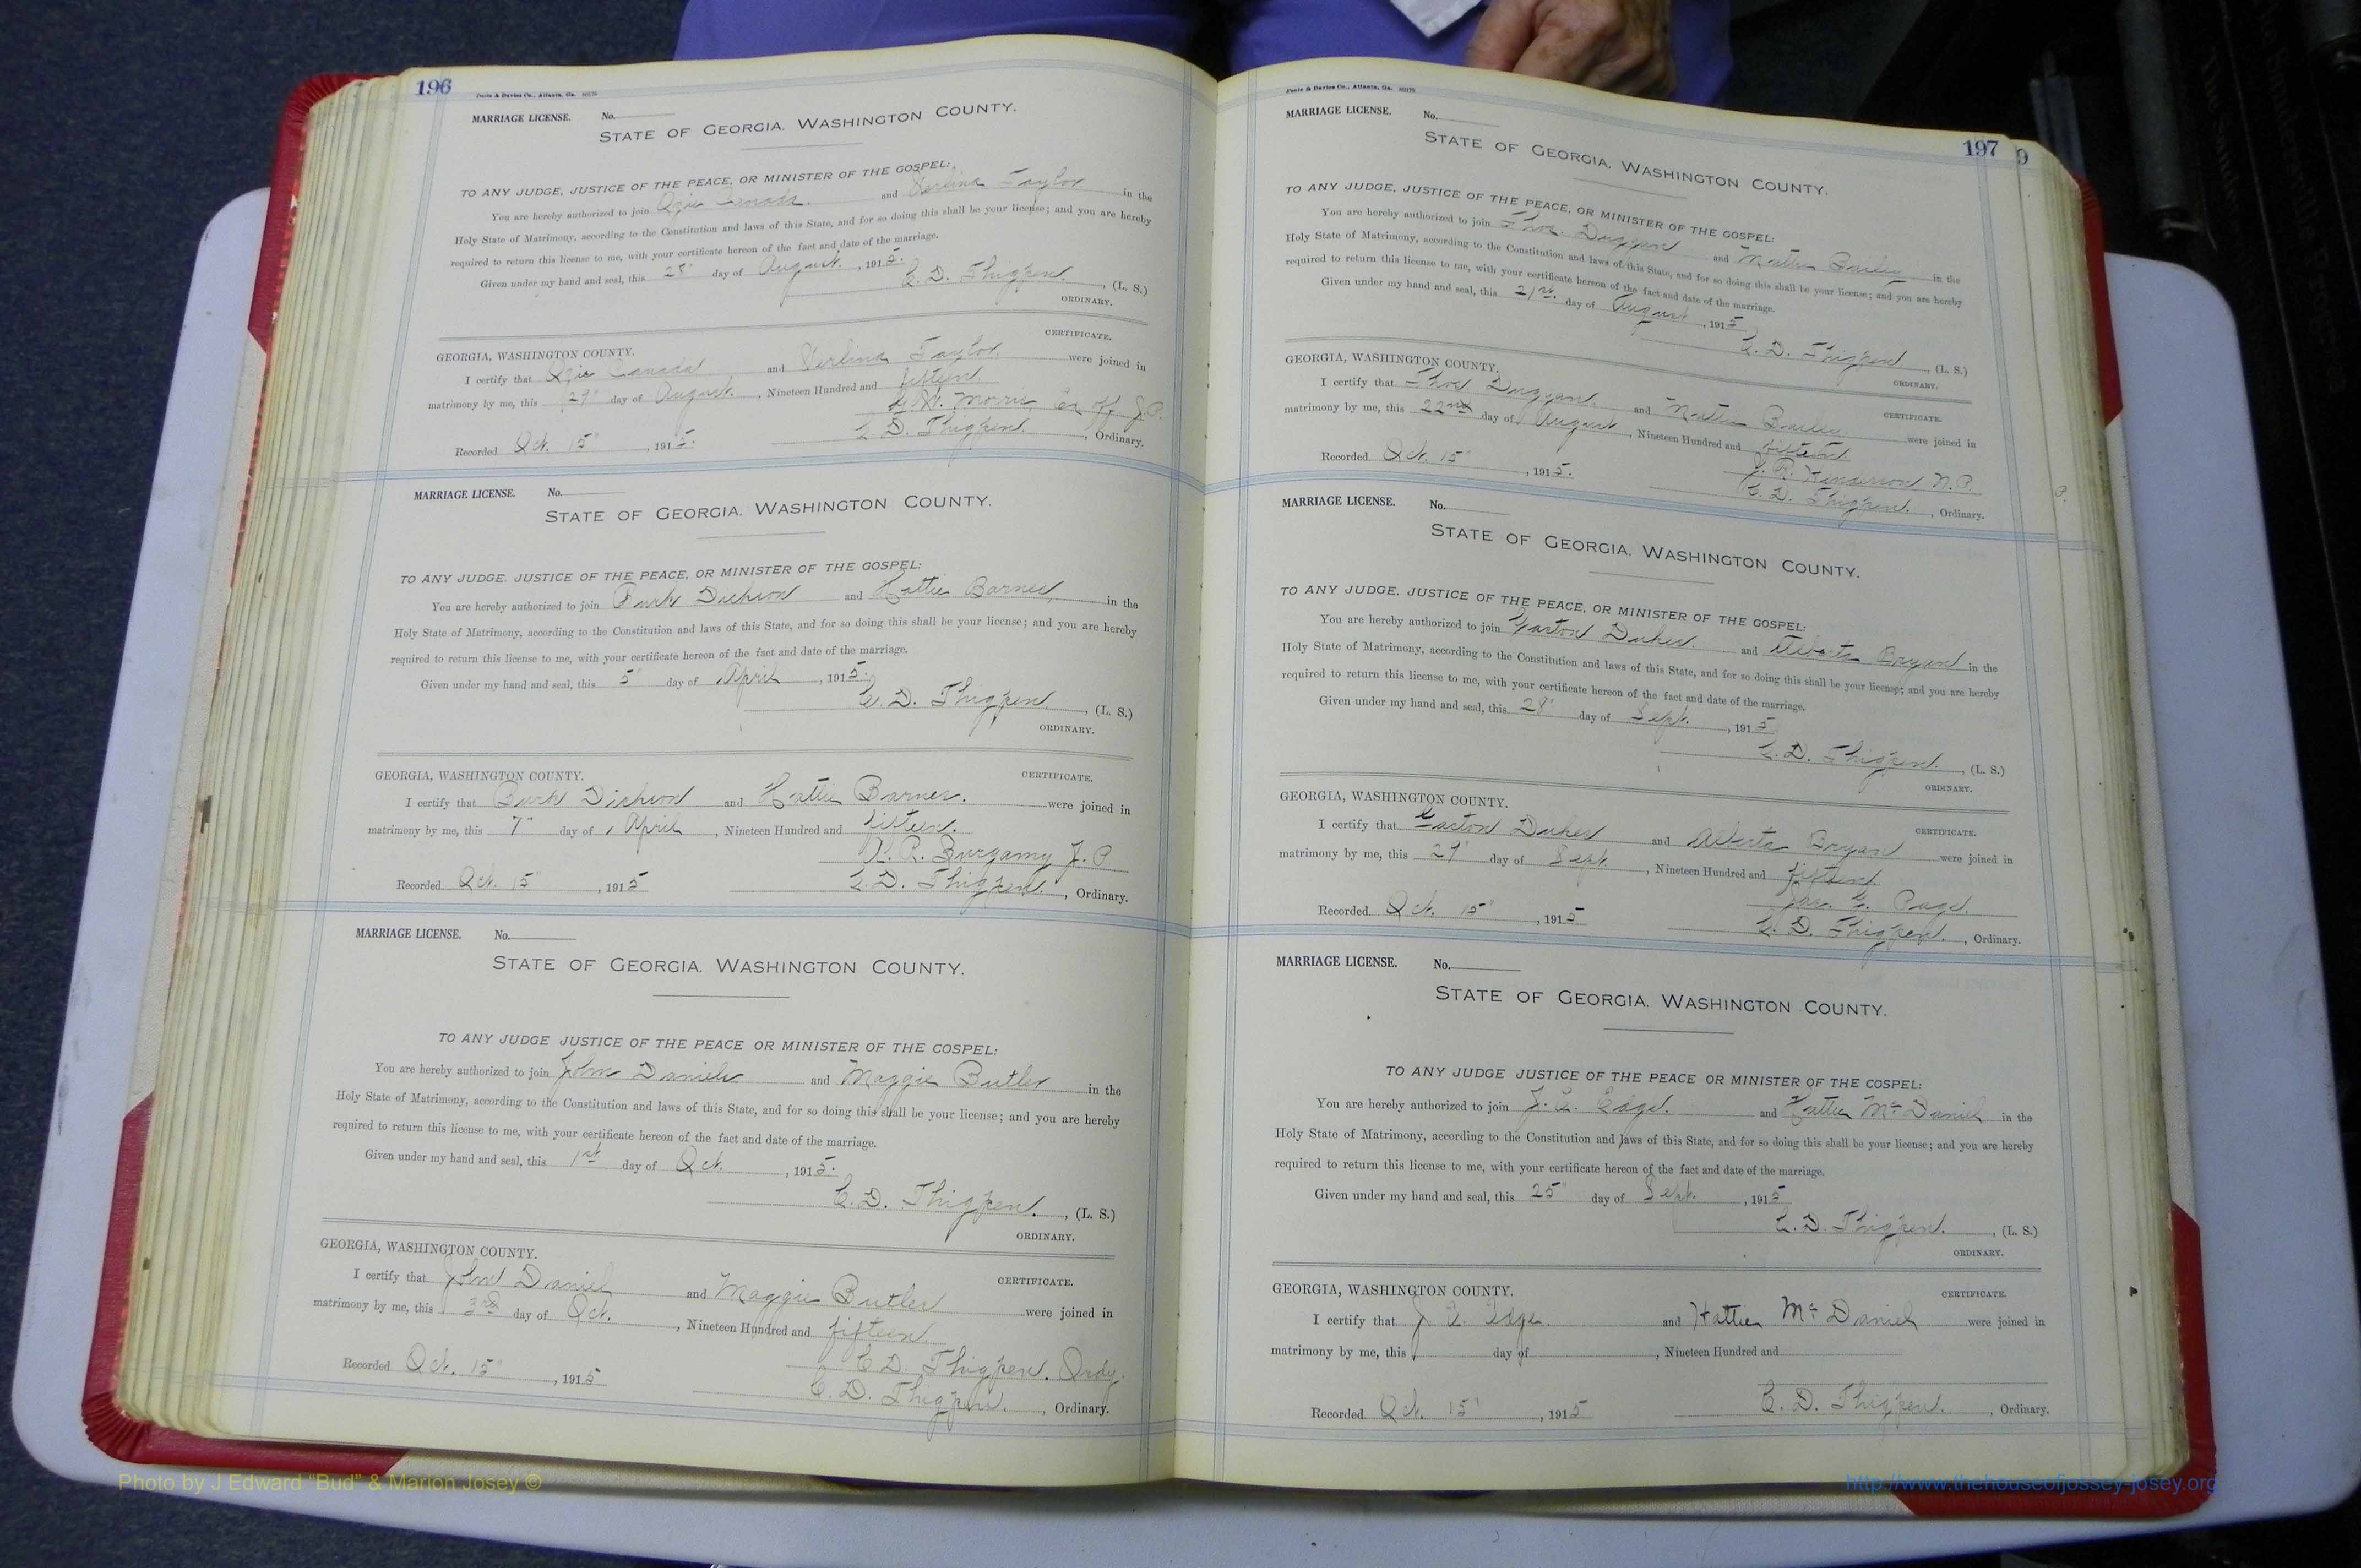 196
Foote & Davies Co., Atlanta, Ga.
MARRIAGE LICENSE. No.
STATE OF GEORGIA. WASHINGTON COUNTY.
TO ANY JUDGE, JUSTICE OF THE PEACE, OR MINISTER OF THE GOSPEL:
You are hereby authorized to join Ozie Canada. and Taylor in the
Holy State of Matrimony, according to the Constitution and laws of this State, and for so doing this shall be your license; and you are hereby
required to return this license to me, with your certificate hereon of the fact and date of the marriage.
Given under my hand and seal, this 28" day of August, 1915.
C. D. Thigpen, (L. S.)
ORDINARY.
CERTIFICATE.
GEORGIA, WASHINGTON COUNTY.
I certify that Ozie Canada and Taylor. were joined in
matrimony by me, this 29" day of August, Nineteen Hundred and fifteen
Morris, Ex off J.P.
Recorded Oct. 15" , 1915. C. D. Thigpen. , Ordinary.
MARRIAGE LICENSE. No.
STATE OF GEORGIA. WASHINGTON COUNTY.
TO ANY JUDGE. JUSTICE OF THE PEACE, OR MINISTER OF THE GOSPEL:
You are hereby authorized to join Burk Dickson and Hattie Barnes, in the
Holy State of Matrimony, according to the Constitution and laws of this State, and for so doing this shall be your license; and you are hereby
required to return this license to me, with your certificate hereon of the fact and date of the marriage.
Given under my hand and seal, this 5" day of April , 1915.
C. D. Thigpen , (L. S.)
ORDINARY.
GEORGIA, WASHINGTON COUNTY. CERTIFICATE.
I certify that Burk Dickson and Hattie Barnes. were joined in
matrimony by me, this 7" day of April , Nineteen Hundred and fifteen.
R. Burgamy J. P
Recorded Oct. 15" , 1915 C. D. Thigpen. , Ordinary.
MARRIAGE LICENSE. No.
STATE OF GEORGIA. WASHINGTON COUNTY.
TO ANY JUDGE JUSTICE OF THE PEACE OR MINISTER OF THE GOSPEL:
You are hereby authorized to join John Daniels and Maggie Butler in the
Holy State of Matrimony, according to the Constitution and laws of this State, and for so doing this shall be your license; and you are hereby
required to return this license to me, with your certificate hereon of the fact and date of the marriage.
Given under my hand and seal, this 1st day of Oct. , 1915.
C. D. Thigpen. , (L. S.)
ORDINARY.
GEORGIA, WASHINGTON COUNTY.
CERTIFICATE.
I certify that John Daniel and Maggie Butler were joined in
matrimony by me, this 3rd day of Oct. , Nineteen Hundred and fifteen
C. D. Thigpen. Ordy.
Recorded Oct. 15" , 1915 C. D. Thigpen. , Ordinary.
Photo by J Edward "Bud" & Marion Josey ©
197
9
Foote & Davies Co., Atlanta, Ga.
MARRIAGE LICENSE. No.
STATE OF GEORGIA. WASHINGTON COUNTY.
TO ANY JUDGE, JUSTICE OF THE PEACE, OR MINISTER OF THE GOSPEL:
You are hereby authorized to join Thos. Duggan and Mattie Bailey in the
Holy State of Matrimony, according to the Constitution and laws of this State, and for so doing this shall be your license; and you are hereby
required to return this license to me, with your certificate hereon of the fact and date of the marriage.
Given under my hand and seal, this 21st. day of August , 1915
C. D. Thigpen , (L. S.)
ORDINARY.
GEORGIA, WASHINGTON COUNTY.
CERTIFICATE.
I certify that Thos Duggan. and Mattie Bailey were joined in
matrimony by me, this 22nd day of August , Nineteen Hundred and fifteen
N.P.
Recorded Oct. 15" , 1915. C. D. Thigpen. , Ordinary.
MARRIAGE LICENSE. No.
STATE OF GEORGIA. WASHINGTON COUNTY.
TO ANY JUDGE. JUSTICE OF THE PEACE, OR MINISTER OF THE GOSPEL:
You are hereby authorized to join Gaston Dukes. and Alberta Bryan in the
Holy State of Matrimony, according to the Constitution and laws of this State, and for so doing this shall be your license; and you are hereby
required to return this license to me, with your certificate hereon of the fact and date of the marriage.
Given under my hand and seal, this 28" day of Sept. , 1915
C. D. Thigpen. , (L. S.)
ORDINARY.
GEORGIA, WASHINGTON COUNTY.
CERTIFICATE.
I certify that Gaston Dukes and Alberta Bryan were joined in
matrimony by me, this 29" day of Sept. , Nineteen Hundred and fifteen.
Jas. G. Page.
Recorded Oct. 15" , 1915 C. D. Thigpen. , Ordinary.
MARRIAGE LICENSE. No.
STATE OF GEORGIA. WASHINGTON COUNTY.
TO ANY JUDGE JUSTICE OF THE PEACE OR MINISTER OF THE GOSPEL:
You are hereby authorized to join J. A. Edge. and Hattie McDaniel in the
Holy State of Matrimony, according to the Constitution and laws of this State, and for so doing this shall be your license; and you are hereby
required to return this license to me, with your certificate hereon of the fact and date of the marriage.
Given under my hand and seal, this 25" day of Sept. , 1915
C. D. Thigpen. , (L. S.)
ORDINARY.
GEORGIA, WASHINGTON COUNTY.
CERTIFICATE.
I certify that J. A. Edge and Hattie McDaniel were joined in
matrimony by me, this day of , Nineteen Hundred and
Recorded Oct. 15" , 1915 C. D. Thigpen. , Ordinary.
http://www.thehouseofjossey-josey.org